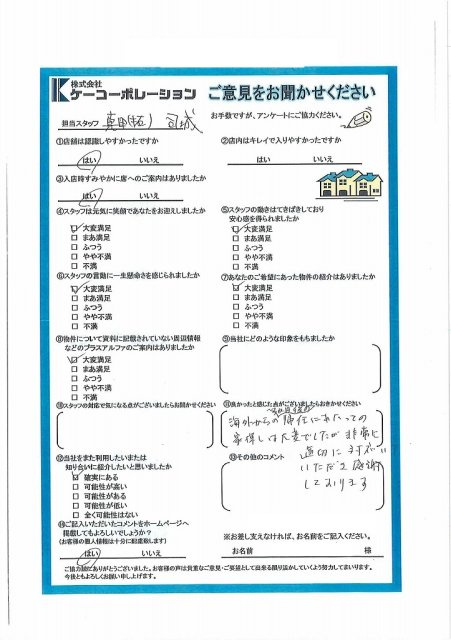 株式会社
ケーコーポレーション ご意見をお聞かせください
お手数ですが、アンケートにご協力ください。
担当スタッフ 司城
①店舗は認識しやすかったですか
はい いいえ
②店内はキレイで入りやすかったですか
はい いいえ
③入店時すみやかに席へのご案内はありましたか
はい いいえ
④スタッフは元気に笑顔であなたをお迎えしましたか
大変満足
まあ満足
ふつう
やや不満
不満
⑤スタッフの動きはてきぱきしており
安心感を得られましたか
大変満足
まあ満足
ふつう
やや不満
不満
⑥スタッフの言動に一生懸命さを感じられましたか
大変満足
まあ満足
ふつう
やや不満
不満
⑦あなたのご希望にあった物件の紹介はありましたか
大変満足
まあ満足
ふつう
やや不満
不満
⑧物件について資料に記載されていない周辺情報
などのプラスアルファのご案内はありましたか
大変満足
まあ満足
ふつう
やや不満
不満
⑨当社にどのような印象をもちましたか
⑩スタッフの対応で気になる点がございましたらお聞かせください
⑪良かったと感じた点がございましたらおきかせください
海外からの帰任にあたっての
家探しは大変でしたが非常に
適切に対応
いただき感謝
しております
⑫当社をまた利用したいまたは
知り合いに紹介したいと思いましたか
確実にある
可能性が高い
可能性がある
可能性が低い
全く可能性はない
⑬その他のコメント
⑭ご記入いただいたコメントをホームページへ
掲載してもよろしいでしょうか？
(お客様の個人情報は十分に配慮致します)
はい いいえ
※お差し支えなければ、お名前をご記入ください。
お名前 様
ご協力誠にありがとうございました。お客様の声は貴重なご意見・ご要望として出来る限り活かしていくよう努力してまいります。
今後ともよろしくお願い申し上げます。